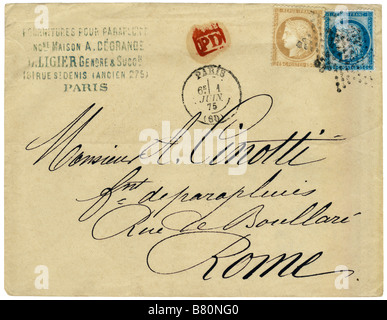 FOURNITURES POUR PARAPLUIE
Nᶜᴺᴺᴱ MAISON A. DEGRANDE
LIGIER GENDRE & SUCCR
RUE ST DENIS (ANCIEN 275)
PARIS
PD
PARIS
6E 1
JUIN
75
(SD)
Monsieur A. Cinotti
fnt de parapluies
Rue de Boullari
Rome
alamy
B80NG0
www.alamy.com